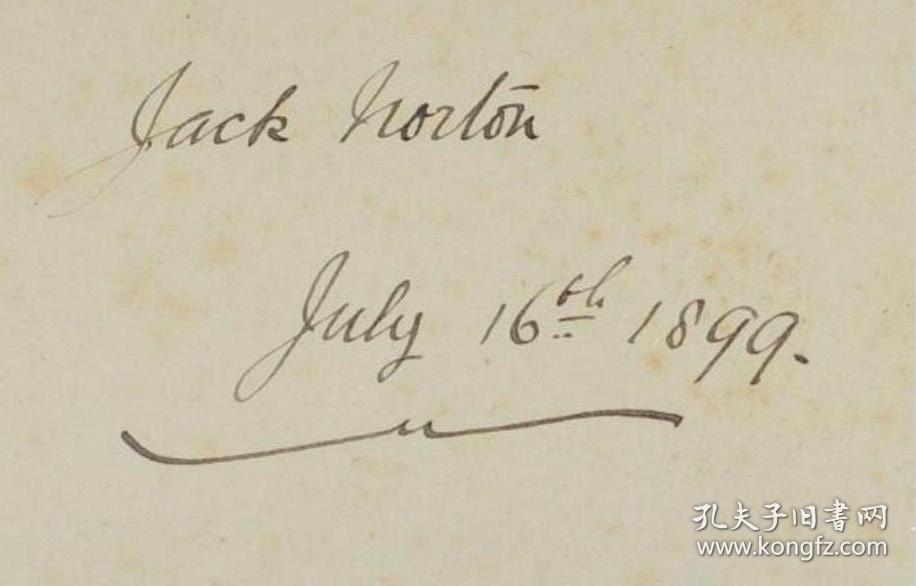 Jack Norton
July 16th 1899.
孔夫子旧書网
www.kongfz.com